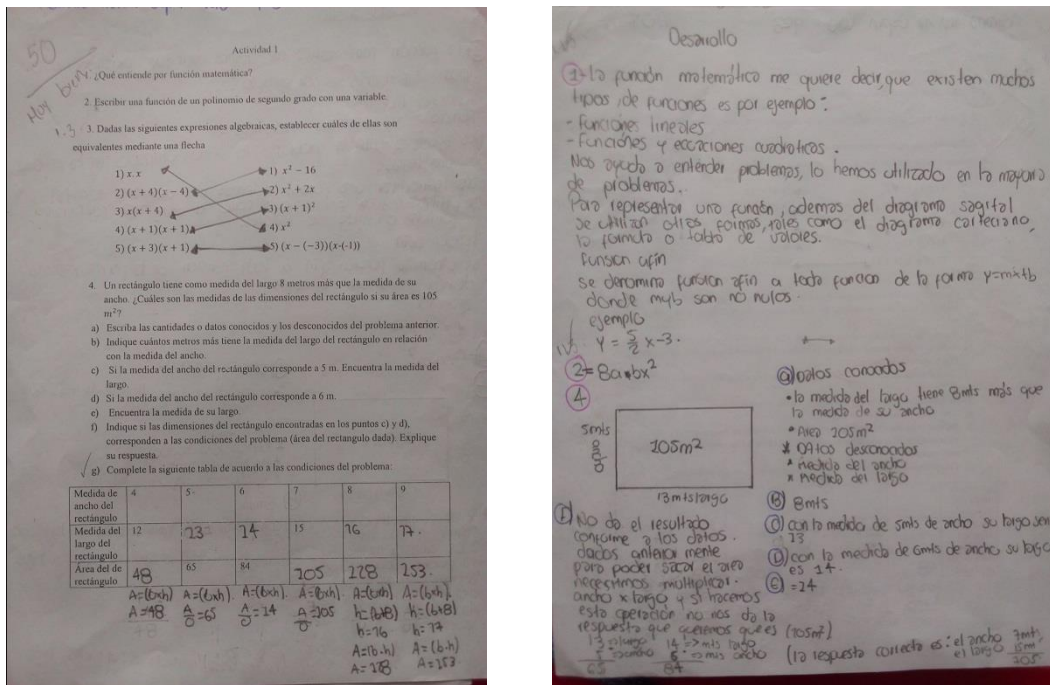 50
Muy bien
Actividad 1
1. ¿Qué entiende por función matemática?
2. Escribir una función de un polinomio de segundo grado con una variable.
1.3
3. Dadas las siguientes expresiones algebraicas, establecer cuáles de ellas son
equivalentes mediante una flecha
1) x. x
1) x² − 16
2) (x + 4)(x − 4)
2) x² + 2x
3) x(x + 4)
3) (x + 1)²
4) (x + 1)(x + 1)
4) x²
5) (x + 3)(x + 1)
5) (x − (−3))(x-(-1))
4. Un rectángulo tiene como medida del largo 8 metros más que la medida de su
ancho. ¿Cuáles son las medidas de las dimensiones del rectángulo si su área es 105
m²?
a) Escriba las cantidades o datos conocidos y los desconocidos del problema anterior.
b) Indique cuántos metros más tiene la medida del largo del rectángulo en relación
con la medida del ancho.
c) Si la medida del ancho del rectángulo corresponde a 5 m. Encuentra la medida del
largo.
d) Si la medida del ancho del rectángulo corresponde a 6 m.
e) Encuentra la medida de su largo.
f) Indique si las dimensiones del rectángulo encontradas en los puntos c) y d),
corresponden a las condiciones del problema (área del rectangulo dada). Explique
su respuesta.
g) Complete la siguiente tabla de acuerdo a las condiciones del problema:
Medida de ancho del rectángulo 4 5 6 7 8 9
Medida del largo del rectángulo 12 13 14 15 16 17.
Área del de rectángulo 48 65 84 105 128 153.
A=(bxh) A=(bxh). A=(bxh). A=(bxh). A=(bxh) A=(bxh).
A=48 A=65 A=14 A=105 h=(b+8) h=(b+8)
h=16 h=17
A=(b·h) A=(b·h)
A=128 A=153
Desarollo
1- la función matemática me quiere decir, que existen muchos
tipos, de funciones es por ejemplo:
- Funciones lineales
- Funciones y ecuaciones cuadroticas.
Nos ayuda a entender problemas, lo hemos utilizado en la mayoria
de problemas.
Para representar una función, ademas del diagrama sagital
se utilizan otras formas, tales como el diagrama carteciano,
la formula o tabla de valores.
Funsion afin
se denomina funsion afin a toda funcion de la forma y=mx+b
donde m y b son no nulos.
ejemplo
Y = 5/2 x-3.
2= 8a•bx²
4
5mts
ancho
105m²
13mts largo
a) Datos conocidos
• la medida del largo tiene 8mts más que
la medida de su ancho
• Area 105m²
* Datos desconocidos
* medida del ancho
* medida del largo
B) 8mts
C) con la medida de 5mts de ancho su largo sera
13
D) con la medida de 6mts de ancho su largo
es 14.
E) =14
F) No da el resultado
conforme a los datos.
dados anterior mente
para poder sacar el area
necesitmos multiplicar.
ancho x largo y si hacemos
esta operación no nos da la
respuesta que queremos que es (105m²)
13 => largo 14 => mts largo
5 => ancho 6 => mts ancho
65 84
(la respuesta correcta es: el ancho 7mts,
el largo 15m
105